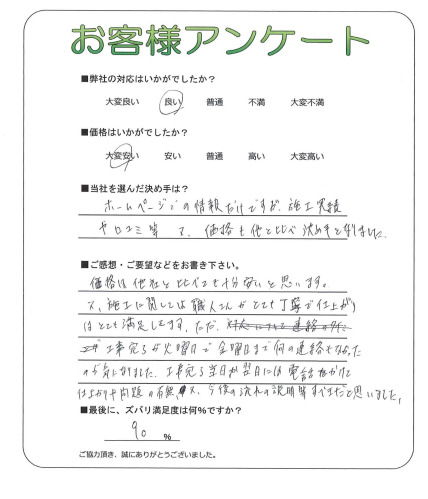 お客様アンケート
■弊社の対応はいかがでしたか?
大変良い 良い 普通 不満 大変不満
■価格はいかがでしたか?
大変安い 安い 普通 高い 大変高い
■当社を選んだ決め手は?
ホームページでの情報だけですが、施工実績
や口コミ等で、価格も他と比べ決め手となりました。
■ご感想・ご要望などをお書き下さい。
価格は他社と比べても十分安いと思います。
又、施工に関しては職人さんがとても丁寧で仕上がり
はとても満足してます。ただ、
工事完了が火曜日で金曜日まで何の連絡もなかった
のが気になりました。工事完了当日か翌日には電話をかけて
仕上がりや問題の有無、又、今後の流れの説明等すべきだと思いました。
■最後に、ズバリ満足度は何%ですか?
90 %
ご協力頂き、誠にありがとうございました。